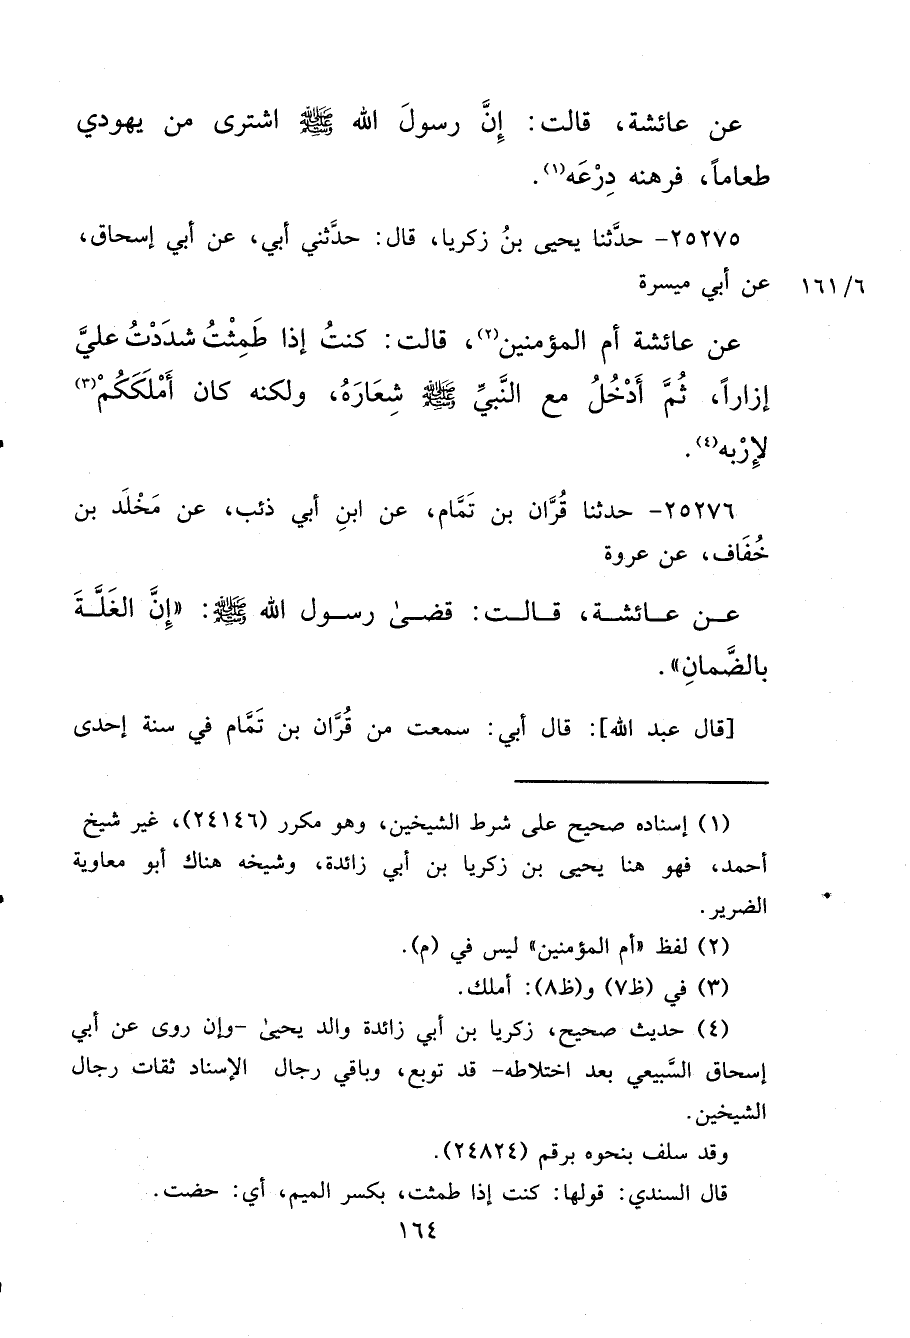 عن عائشة، قالت: إِنَّ رسولَ الله ﷺ اشترى من يهودي
طعاماً، فرهنه دِرْعَه(١).
٢٥٢٧٥- حدَّثنا يحيى بنُ زكريا، قال: حدَّثني أبي، عن أبي إسحاق،
عن أبي ميسرة
١٦١/٦
عن عائشة أم المؤمنين(٢)، قالت: كنتُ إذا طَمِثْتُ شدَدْتُ عليَّ
إزاراً، ثُمَّ أَدْخُلُ مع النَّبيِّ ﷺ شِعَارَهُ، ولكنه كان أَمْلَكَكُمْ(٣)
لإِرْبه(٤).
٢٥٢٧٦- حدثنا قُرَّان بن تَمَّام، عن ابنِ أبي ذئب، عن مَخْلَد بن
خُفَاف، عن عروة
عن عائشة، قالت: قضىٰ رسول الله ﷺ: «إِنَّ الغَلَّةَ
بالضَّمانِ».
[قال عبد الله]: قال أبي: سمعت من قُرَّان بن تَمَّام في سنة إحدى
(١) إسناده صحيح على شرط الشيخين، وهو مكرر (٢٤١٤٦)، غير شيخ
أحمد، فهو هنا يحيى بن زكريا بن أبي زائدة، وشيخه هناك أبو معاوية
الضرير.
(٢) لفظ «أم المؤمنين» ليس في (م).
(٣) في (ظ٧) و(ظ٨): أملك.
(٤) حديث صحيح، زكريا بن أبي زائدة والد يحيىٰ -وإن روى عن أبي
إسحاق السَّبيعي بعد اختلاطه- قد توبع، وباقي رجال الإسناد ثقات رجال
الشيخين.
وقد سلف بنحوه برقم (٢٤٨٢٤).
قال السندي: قولها: كنت إذا طمثت، بكسر الميم، أي: حضت.
١٦٤